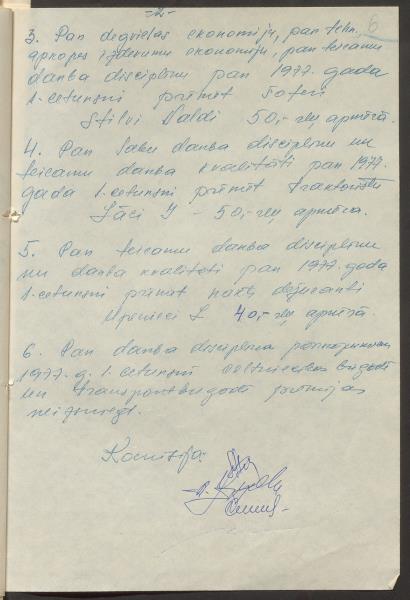 -2-
6
3. Par degvielas ekonomiju, par tehn.
apkopes izdevumu ekonomiju, par teicamu
darba disciplīnu par 1977. gada
1. ceturksni prēmēt šoferi
Stilvi Valdi 50,- rbļ apmērā.
4. Par labu darba disciplīnu un
teicamu darba kvalitāti par 1977.
gada 1. ceturksni prēmēt traktoristu
Lāci J - 50,- rbļ apmērā.
5. Par teicamu darba disciplīnu
un darba kvalitāti par 1977. gada
1. ceturksni prēmēt nakts dežuranti
Upenieci L 40,- rbļ apmērā.
6. Par darba disciplīnas pārkāpumiem
1977. g. 1. ceturksnī celtniecības brigādi
un transportbrigādi prēmijas
neizsniegt.
Komisija: